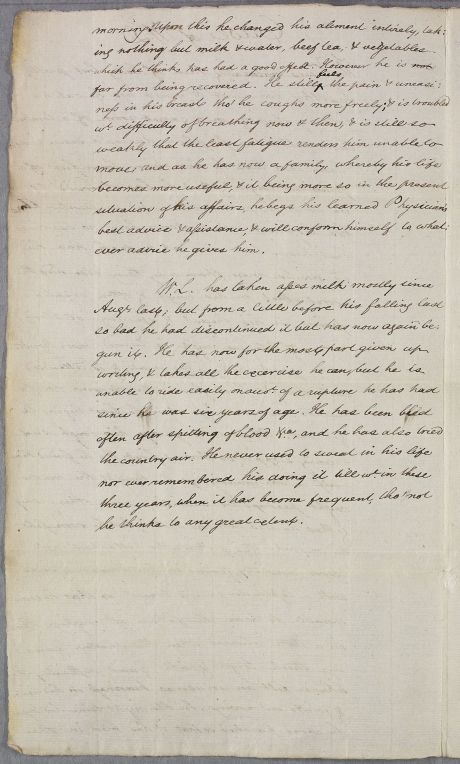 morning. Upon this he changed his aliment intirely, tak:
ing nothing but milk & water, beef tea, & vegetables
which he thinks has had a good effect. However he is
far from being recovered. He still feels the pain & uneasi:
ness in his breast tho' he coughs more freely; & is troubled
wt. difficulty of breathing now & then, & is still so
weakly that the least fatigue renders him unable to
move; and as he has now a family, whereby his life
becomes more useful, & it being more so in the present
situation of his affairs, he begs his learned Physician's
best advice & assistance, & will conform himself to what:
ever advice he gives him.
W. L. has taken asses milk mostly since
Augt. last; but from a little before his falling last
so bad he had discontinued it but has now again be:
gun it. He has now for the most part given up
writing, & takes all the excercise he can, but he is
unable to ride easily on acct. of a rupture he has had
since he was six years of age. He has been bled
often after spitting of blood &ca, and he has also tried
the country air. He never used to sweat in his life
nor ever remembered his doing it till wt.in these
three years, when it has become frequent, tho' not
he thinks to any great extent.